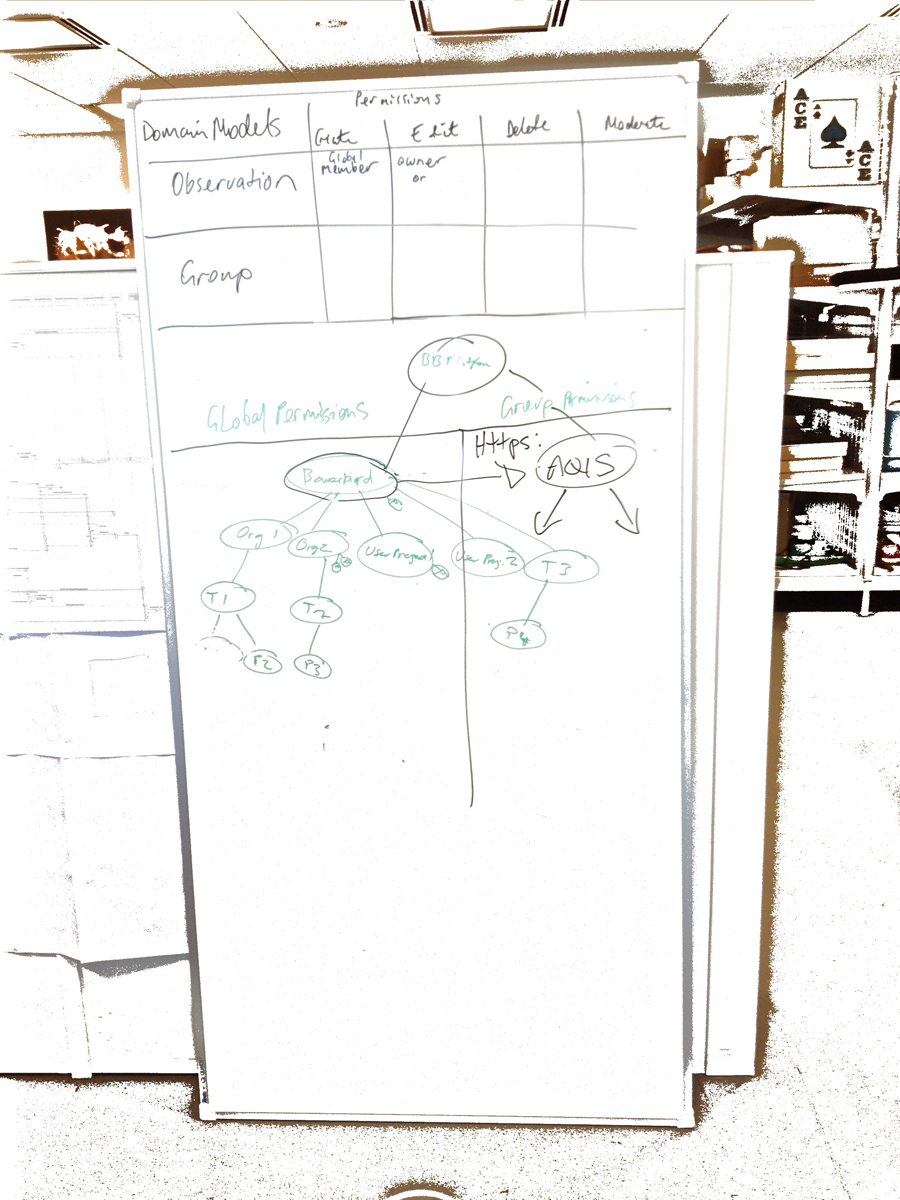 Permissions
Domain Models
Create
Edit
Delete
Moderate
Observation
Global
Member
owner
or
Group
BB Platform
Global Permissions
Group Permissions
Https:
AQIS
Bowerbird
Org 1
Org 2
User Project 1
User Proj. 2
T3
T1
T2
P4
P2
P3
ACE
ACE